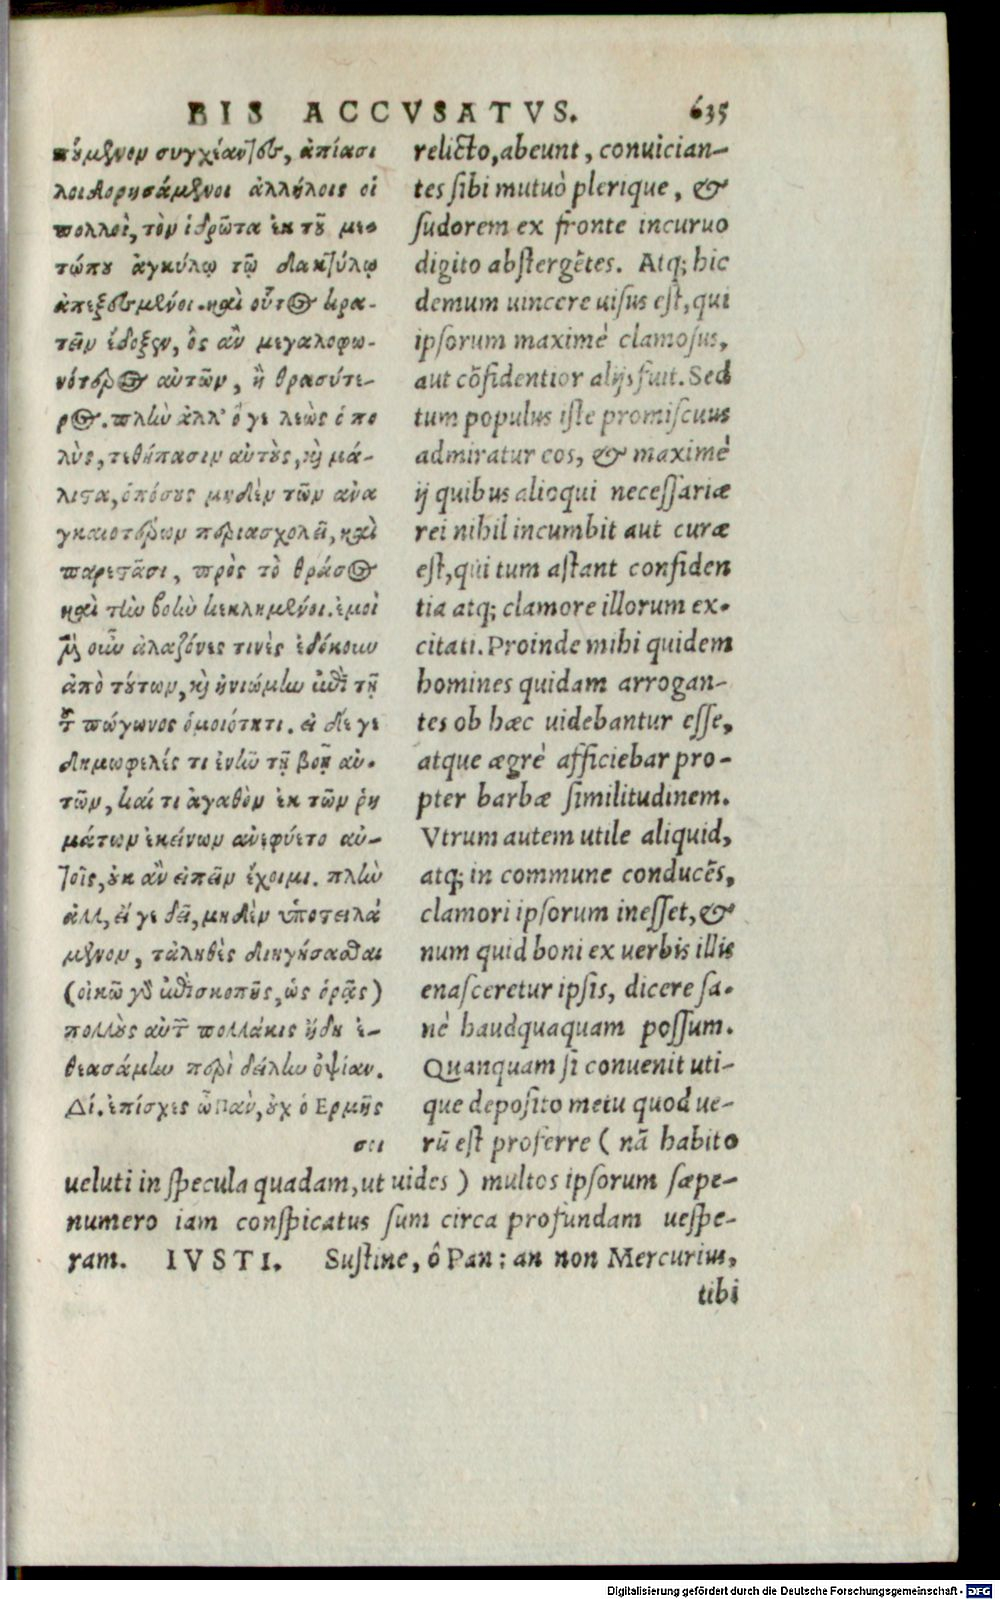 BIS ACCVSATVS. 635
πόμενον συγχέαντες, ἀπίασι
λοιδορησάμενοι ἀλλήλοις οἱ
πολλοὶ, τὸν ἱδρῶτα ἐκ τοῦ με-
τώπου ἀγκύλῳ τῷ δακτύλῳ
ἀπεξόμενοι. καὶ οὗτος κρα-
τεῖν ἔδοξεν, ὃς ἂν μεγαλοφω-
νότερος αὐτῶν, ἢ θρασύτε-
ρος. πλὴν ἀλλ' ὅ γε λεὼς ὁ πο
λὺς, τεθήπασιν αὐτοὺς, καὶ μά-
λιστα, ὁπόσους μηδὲν τῶν ανα
γκαιοτέρων περιασχολεῖ, καὶ
παρεστᾶσι, πρὸς τὸ θράσος
καὶ τὴν βοὴν κεκλημένοι. ἐμοὶ
μὲν οὖν ἀλαζόνες τινὲς ἐδόκουν
ἀπὸ τούτων, καὶ ἠνιώμην ἐπὶ τῇ
τοῦ πώγωνος ὁμοιότητι. εἰ δέ γε
δημωφελές τι ἐνῆν τῇ βοῇ αὐ-
τῶν, καί τι ἀγαθὸν ἐκ τῶν ῥη
μάτων ἐκείνων ανεφύετο αὐ-
τοῖς, οὐκ ἂν εἰπεῖν ἔχοιμι. πλὴν
ἀλλ, εἴ γε δεῖ, μηδὲν ὑποστειλά
μενον, τἀληθὲς διηγήσασθαι
(οἰκῶ γὰρ ἐπὶ σκοπῆς, ὡς ὁρᾷς)
πολλοὺς αὐτῶν πολλάκις ἤδη ἐ-
θεασάμην περὶ δείλην ὀψίαν.
Δί. ἐπίσχες ὦ Πὰν, οὐχ ὁ Ερμῆς
σει
relicto, abeunt, conuician-
tes sibi mutuò plerique, &
sudorem ex fronte incuruo
digito abstergẽtes. Atq; hic
demum uincere uisus est, qui
ipsorum maximè clamosus,
aut cõfidentior alijs fuit. Sed
tum populus iste promiscuus
admiratur eos, & maximè
ij quibus alioqui necessariæ
rei nihil incumbit aut curæ
est, qui tum astant confiden
tia atq; clamore illorum ex-
citati. Proinde mihi quidem
homines quidam arrogan-
tes ob hæc uidebantur esse,
atque ægrè afficiebar pro-
pter barbæ similitudinem.
Vtrum autem utile aliquid,
atq; in commune conducẽs,
clamori ipsorum inesset, &
num quid boni ex uerbis illis
enasceretur ipsis, dicere sa-
nè haudquaquam possum.
Quanquam si conuenit uti-
que deposito metu quod ue-
rũ est proferre ( nã habito
ueluti in specula quadam, ut uides ) multos ipsorum sæpe-
numero iam conspicatus sum circa profundam uespe-
ram. IVSTI. Sustine, ô Pan: an non Mercurius,
tibi
Digitalisierung gefördert durch die Deutsche Forschungsgemeinschaft - DFG